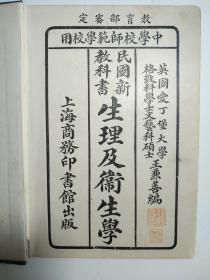 教育部審定
中學校師範學校用
英國愛丁堡大學
格致科學士文藝科碩士 王兼善編
民國新
教科書
生理及衞生學
上海商務印書館出版